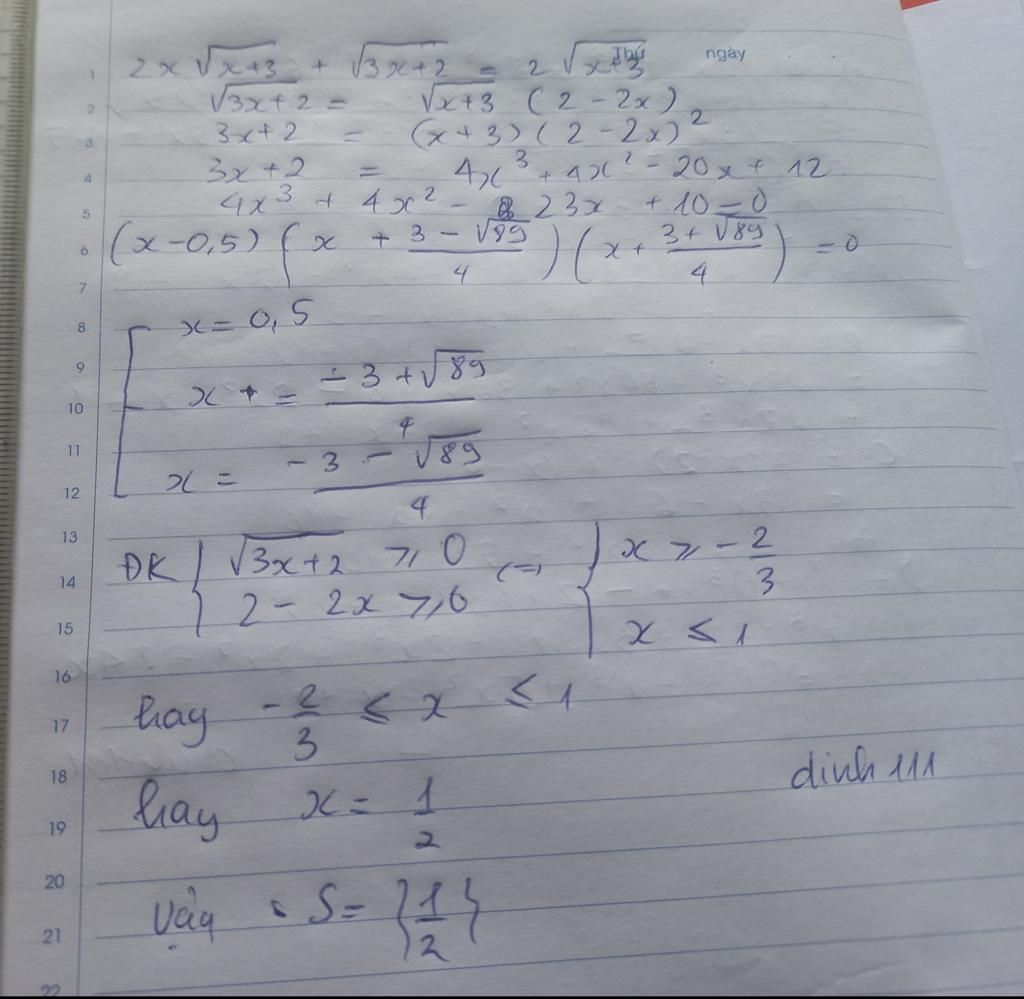 Thứ ngày
1 2x√(x+3) + √(3x+2) = 2√(x+3)
2 √(3x+2) = √(x+3) (2 - 2x)
3 3x+2 = (x+3)(2 - 2x)²
4 3x+2 = 4x³ + 4x² - 20x + 12
5 4x³ + 4x² - 23x + 10 = 0
6 (x - 0,5) (x + (3 - √89)/4) (x + (3 + √89)/4) = 0
7
8 [ x = 0,5
9
10 x = (-3 + √89)/4
11
12 x = (-3 - √89)/4
13
14 ĐK { √(3x+2) ⩾ 0 (=) { x ⩾ -2/3
15 2 - 2x ⩾ 0 x ≤ 1
16
17 hay -2/3 ≤ x ≤ 1
18 dinh 111
19 hay x = 1/2
20
21 Vậy : S = {1/2}
22